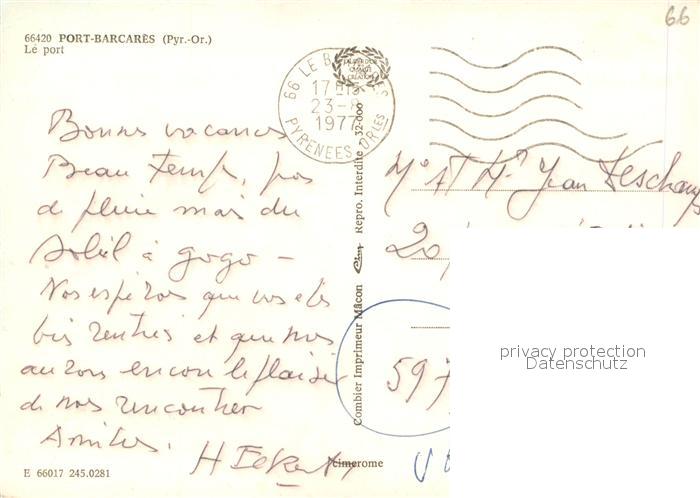 66
66420 PORT-BARCARÈS (Pyr.-Or.)
Le port
66 LE B
17H15
23-8
1977
PYRENEES ORLES
Bonnes vacances
Beau temps, pas
de pluie mais du
soleil à gogo -
Nous espérons que vous êtes
bien rentrés et que nous
aurons encore le plaisir
de nous rencontrer
Amitiés.
H
Mr et Mme Jean Deschamps
20,
597
Combier Imprimeur Mâcon Cim Repro. Interdite 32-000
cimerome
E 66017 245.0281
privacy protection
Datenschutz